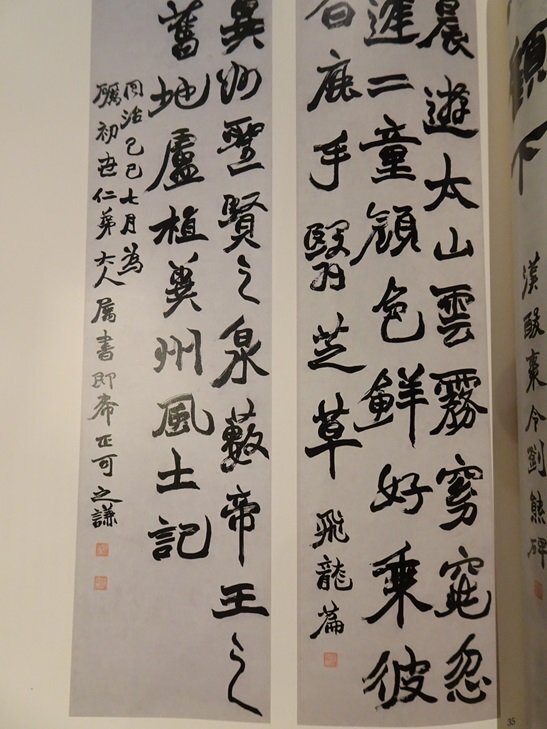 下
漢酸棗令劉熊碑
晨遊太山雲霧窈窕忽
逢二童顏色鮮好乘彼
白鹿手翳芝草
飛龍篇
冀州聖賢之泉藪帝王之
舊地盧植冀州風土記
同治己巳七月為
礪初仁弟大人屬書即希正可之謙
35